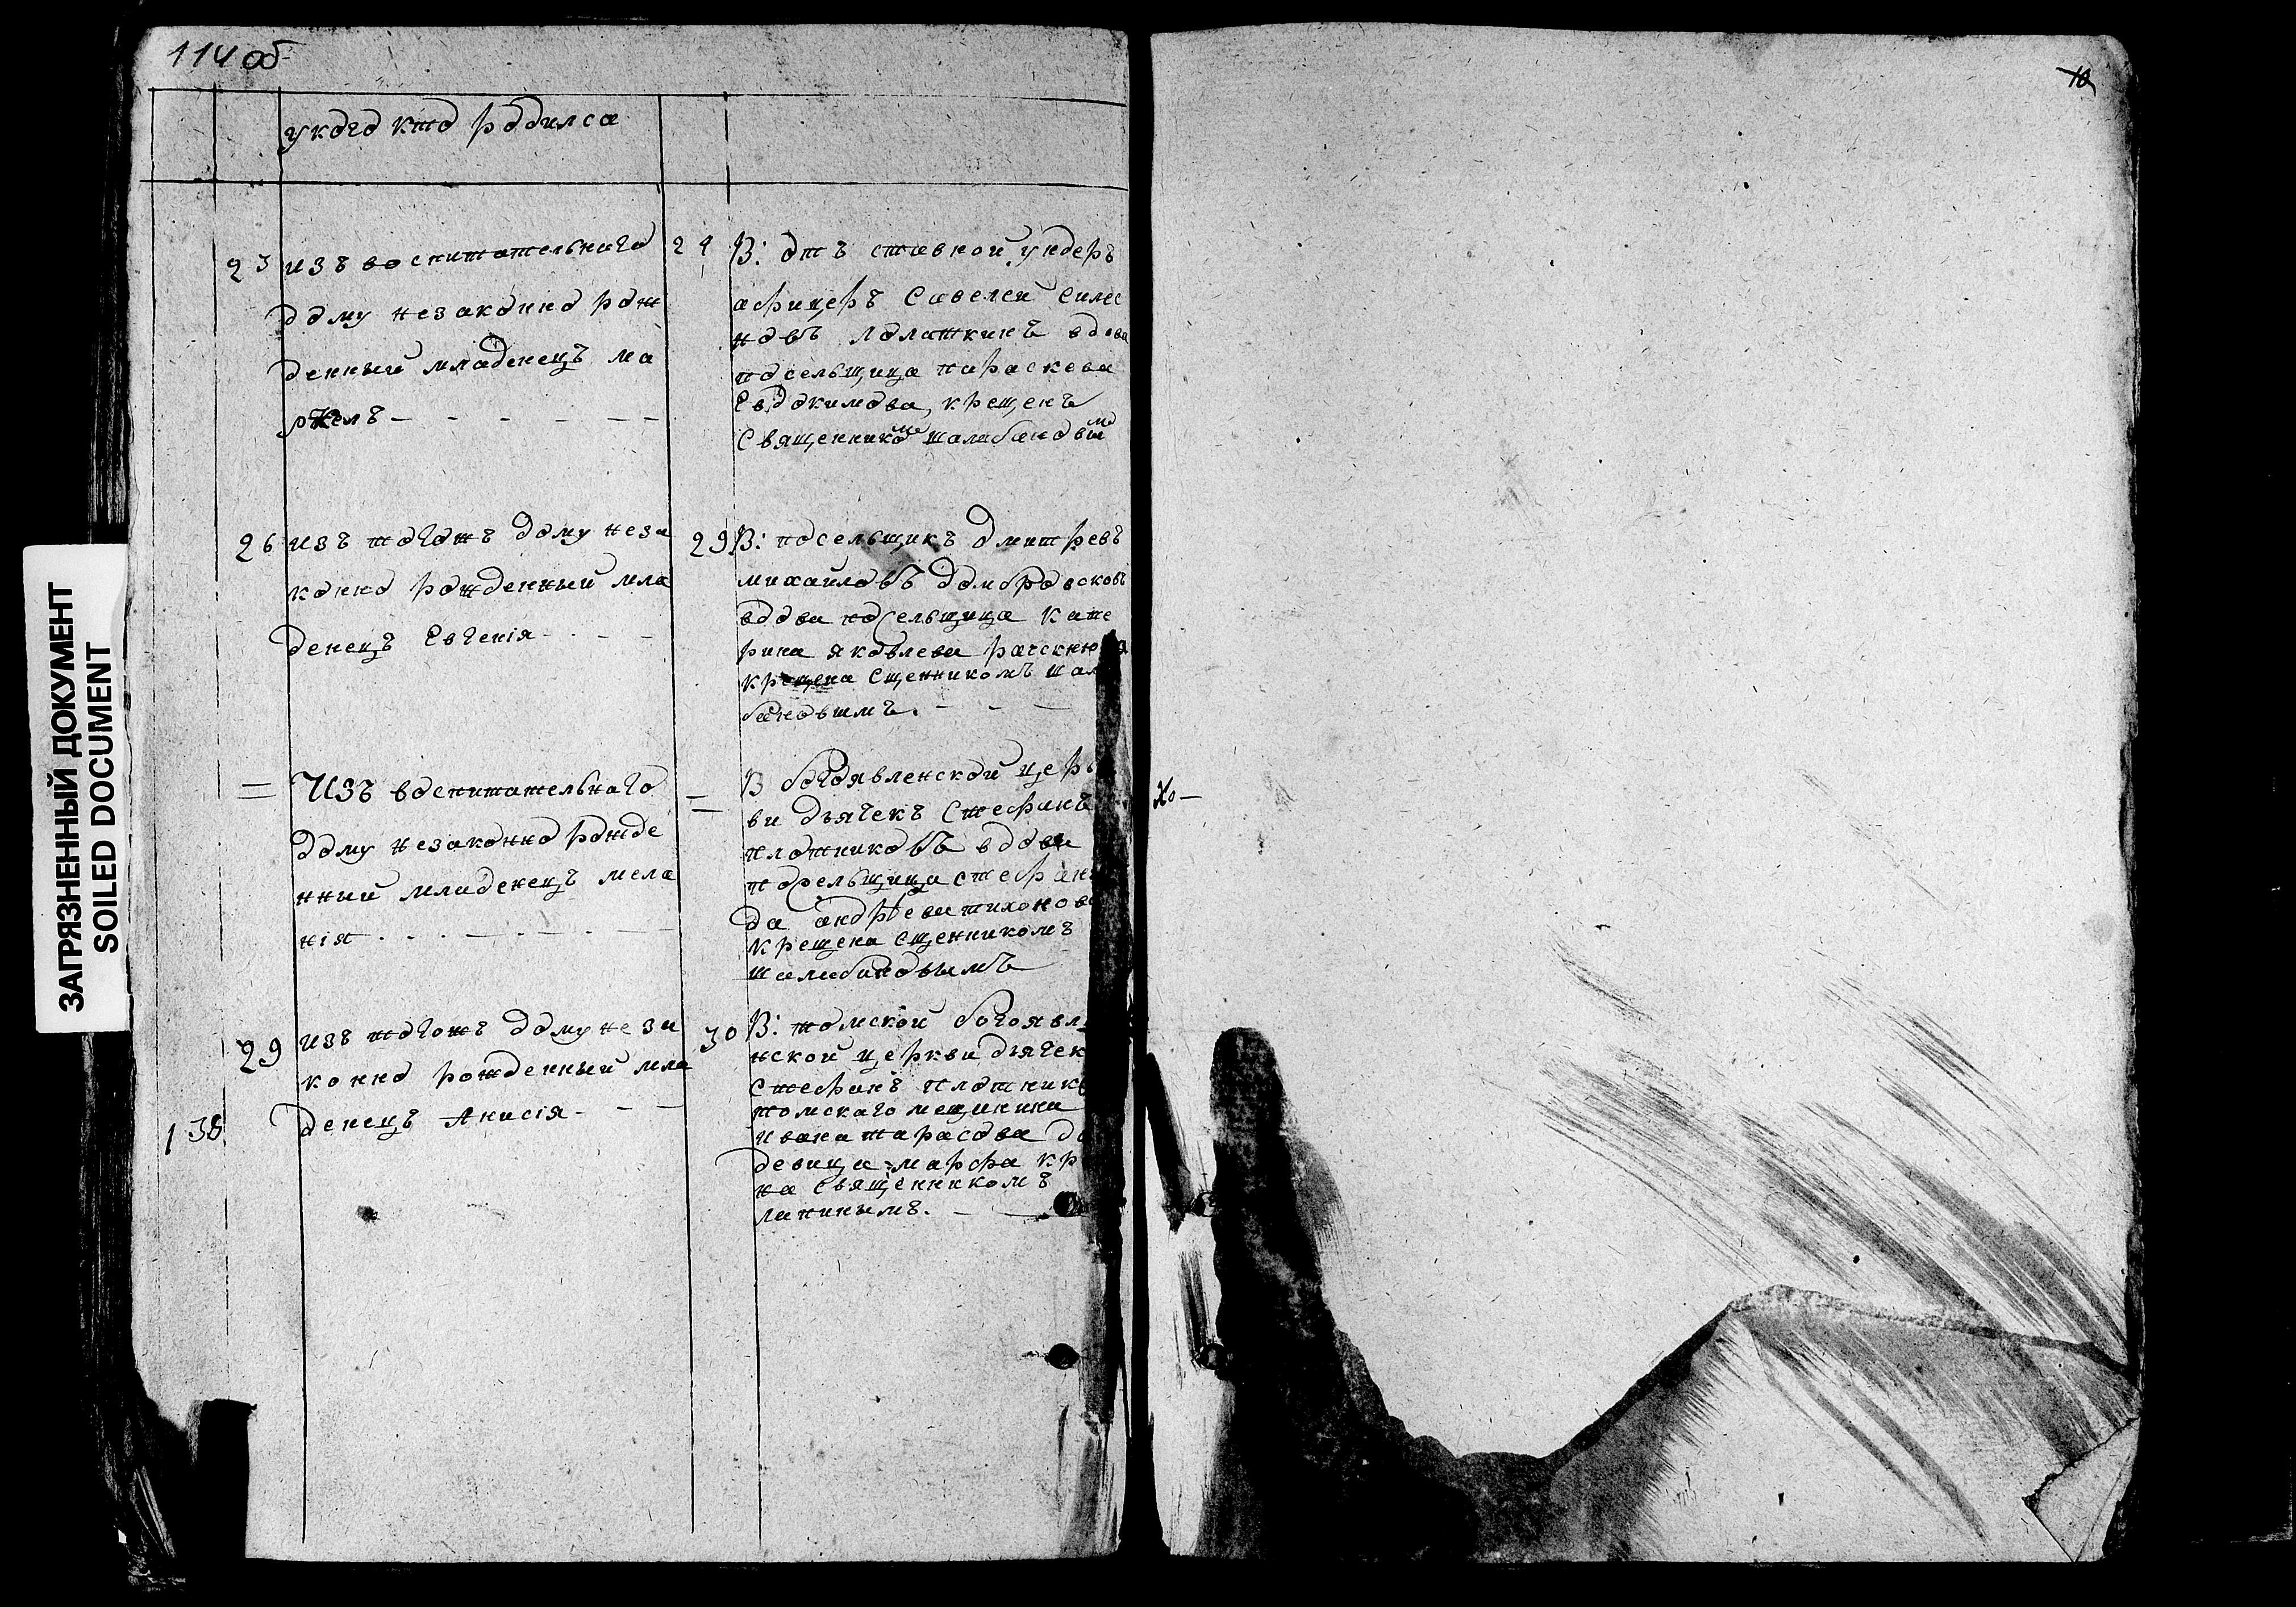 114 об
укого кто родился
23 изъ воспитательнаго
дому незаконно рож
денный младенецъ ма
ркелъ
24 В: отъ ставной ундеръ
афицеръ Савелей Симео
новъ Лопаткинъ вдова
посельщица параскева
Евдокимова, крещенъ
Священникомъ шалабановым
26 изъ тогожъ дому неза
конно рожденный мла
денецъ Евгенія
29 В: посельщикъ дмитревъ
михаиловъ домбровсковъ
вдова посельщица кате
рина яковлева
крещена сщенникомъ шал
бановымъ.
= Изъ воспитательнаго
дому незаконно рожде
нный младенецъ мела
нія
= В богоявленской церк
ви дьячекъ Стефанъ
плотниковъ вдова
посельщица стефани
да андрѣева тихонова
крещена сщенникомъ
шалабановымъ
29 изъ тогожъ дому неза
конно рожденный мла
денецъ Анисія
138
30 В: томской богоявле
нской церкви дьячек
стефанъ плотнико
томскаго мещинина
ивана тарасова до
девица марфа кр
на священникомъ
лапинымъ.
Хо
10
ЗАГРЯЗНЕННЫЙ ДОКУМЕНТ
SOILED DOCUMENT